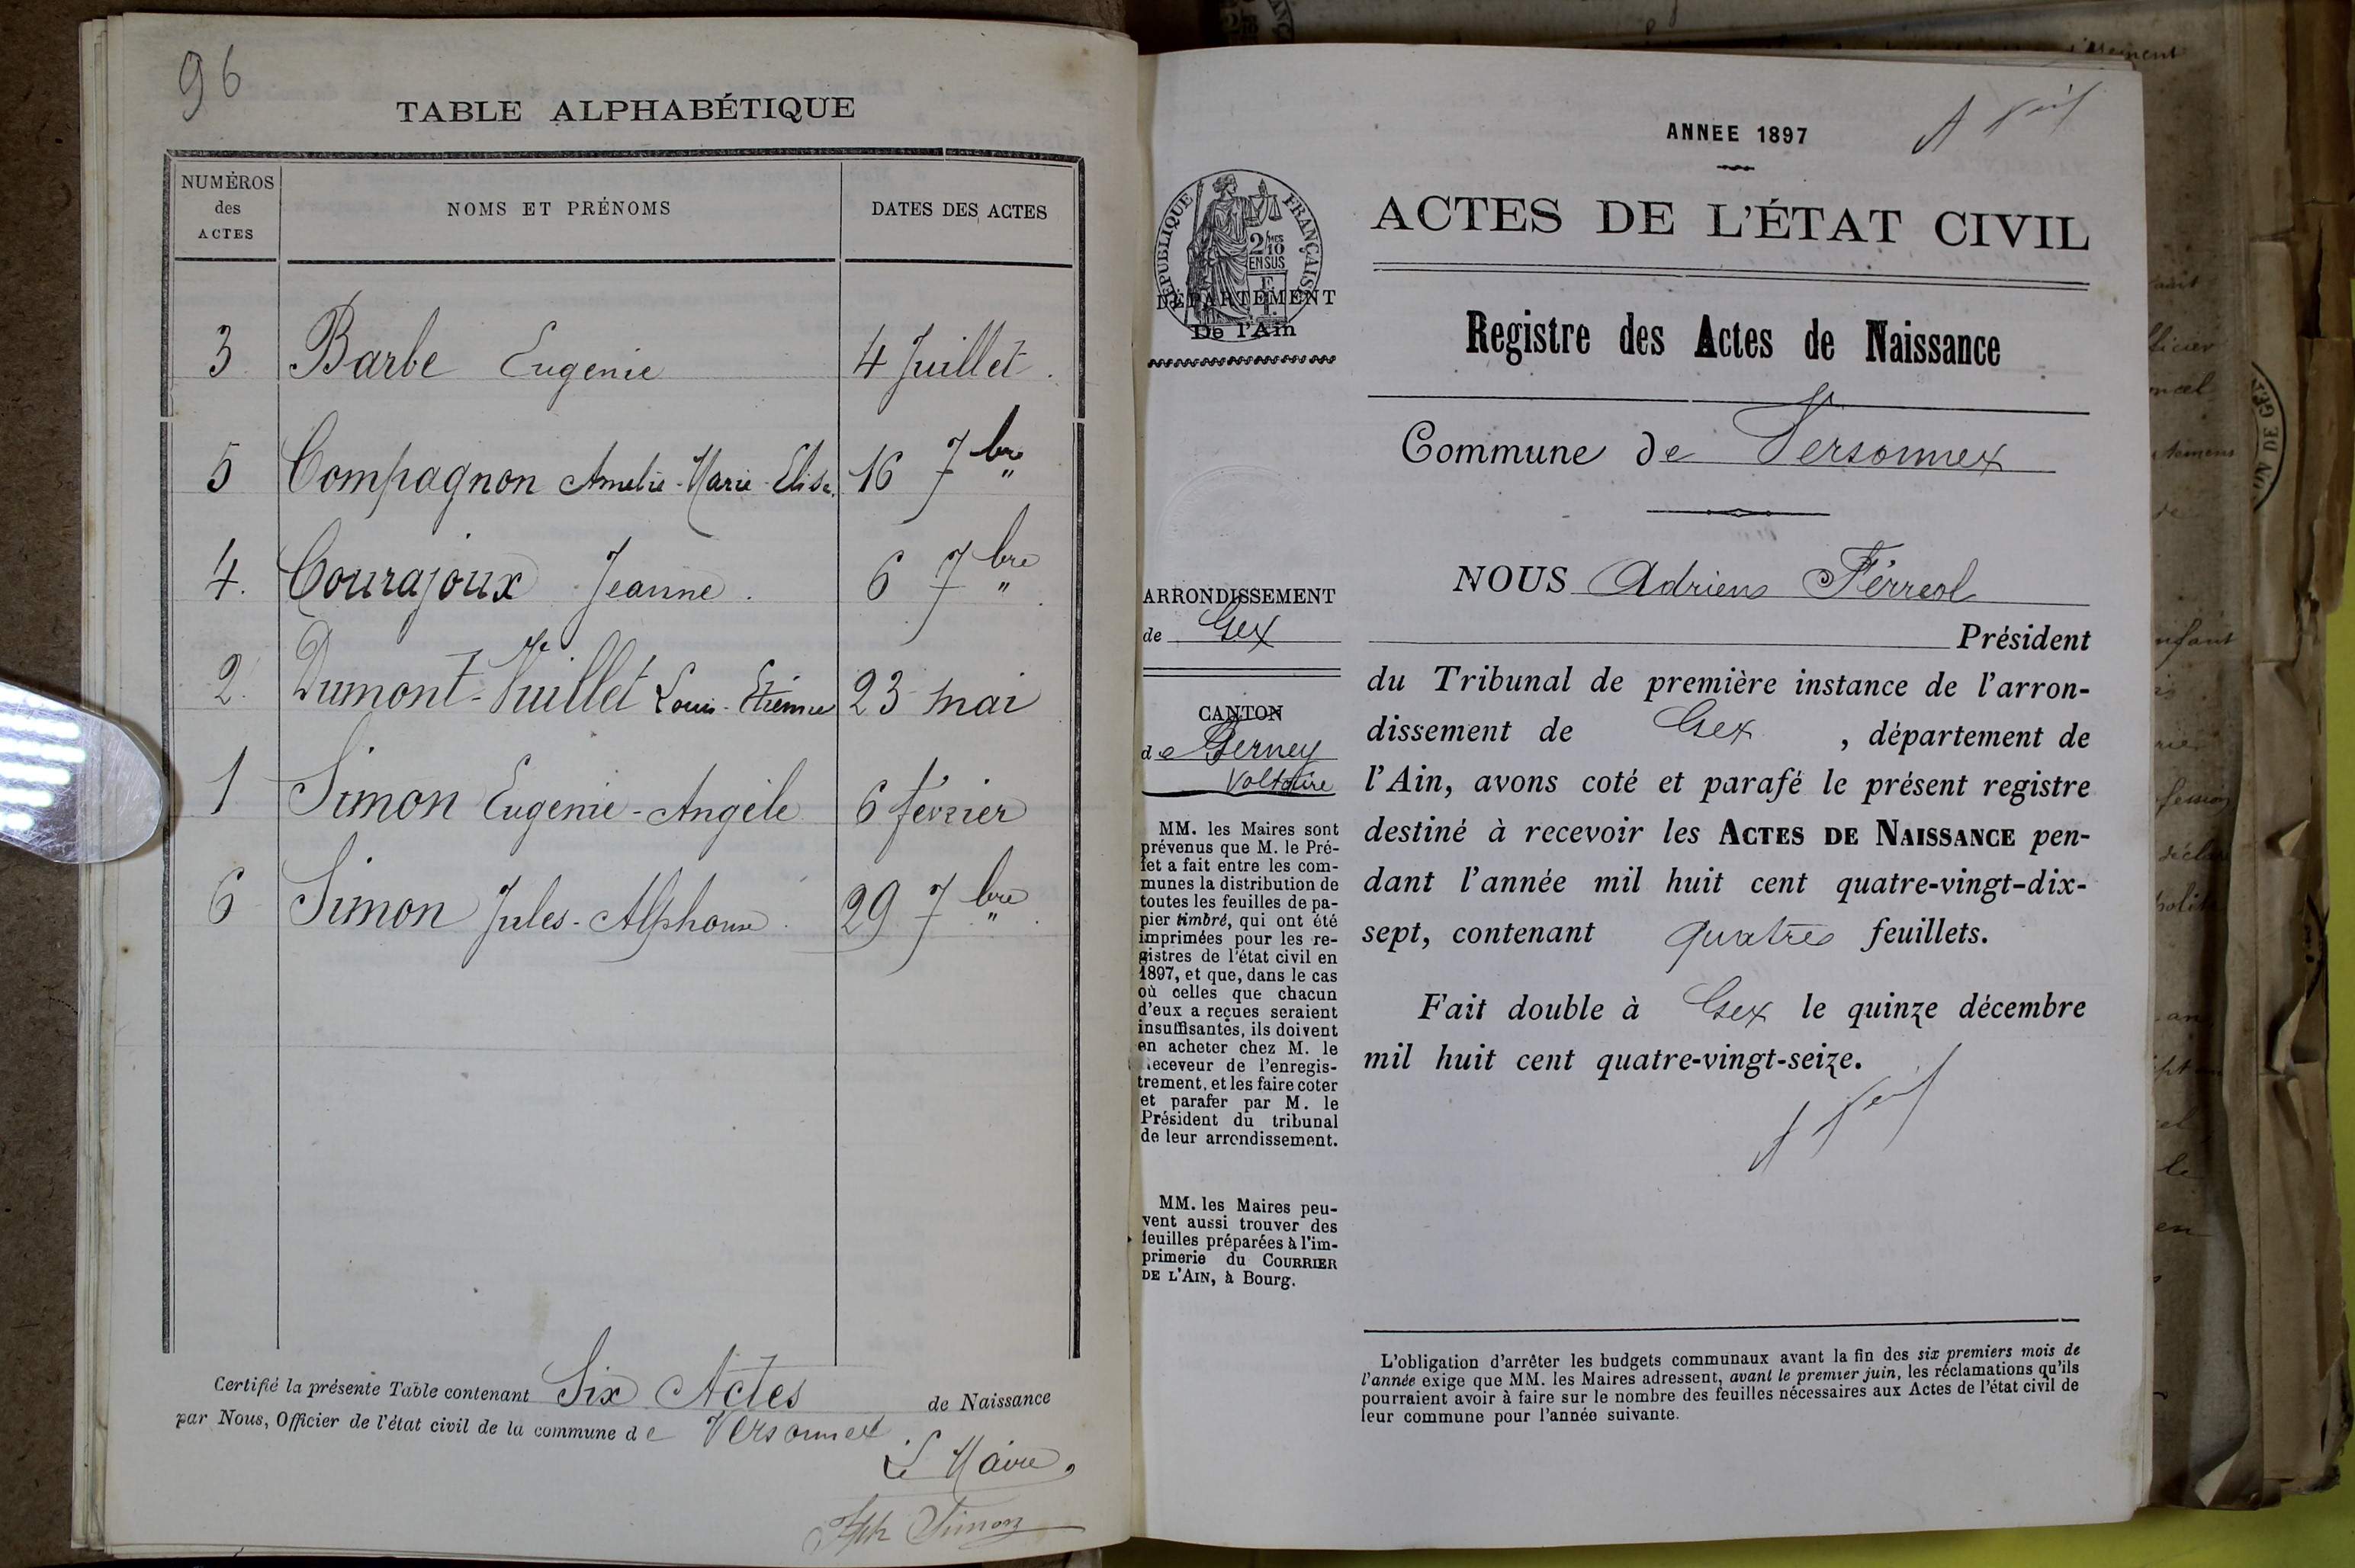 96
TABLE ALPHABÉTIQUE
NUMÉROS des ACTES
NOMS ET PRÉNOMS
DATES DES ACTES
3 Barbe Eugenie 4 Juillet.
5 Compagnon Amelie-Marie-Elise. 16 7bre "
4. Courajoux Jeanne. 6 7bre "
2. Dumont-Vuillet Louis-Etienne 23 mai
1 Simon Eugenie-Angèle 6 février
6 Simon Jules-Alphonse. 29 7bre "
Certifié la présente Table contenant Six Actes de Naissance
par Nous, Officier de l'état civil de la commune de Versonnex
Le Maire,
Simon
ANNEE 1897
RÉPUBLIQUE FRANÇAISE
2/10 EN SUS
DÉPARTEMENT
De l'Ain
ACTES DE L'ÉTAT CIVIL
Registre des Actes de Naissance
Commune de Versonnex
ARRONDISSEMENT
de Gex
CANTON
de Ferney
Voltaire
MM. les Maires sont
prévenus que M. le Pré-
fet a fait entre les com-
munes la distribution de
toutes les feuilles de pa-
pier timbré, qui ont été
imprimées pour les re-
gistres de l'état civil en
1897, et que, dans le cas
où celles que chacun
d'eux a reçues seraient
insuffisantes, ils doivent
en acheter chez M. le
receveur de l'enregis-
trement, et les faire coter
et parafer par M. le
Président du tribunal
de leur arrondissement.
MM. les Maires peu-
vent aussi trouver des
feuilles préparées à l'im-
primerie du COURRIER
DE L'AIN, à Bourg.
NOUS Adrien Férréol
Président
du Tribunal de première instance de l'arron-
dissement de Gex, département de
l'Ain, avons coté et parafé le présent registre
destiné à recevoir les ACTES DE NAISSANCE pen-
dant l'année mil huit cent quatre-vingt-dix-
sept, contenant quatre feuillets.
Fait double à Gex le quinze décembre
mil huit cent quatre-vingt-seize.
L'obligation d'arrêter les budgets communaux avant la fin des six premiers mois de
l'année exige que MM. les Maires adressent, avant le premier juin, les réclamations qu'ils
pourraient avoir à faire sur le nombre des feuilles nécessaires aux Actes de l'état civil de
leur commune pour l'année suivante.